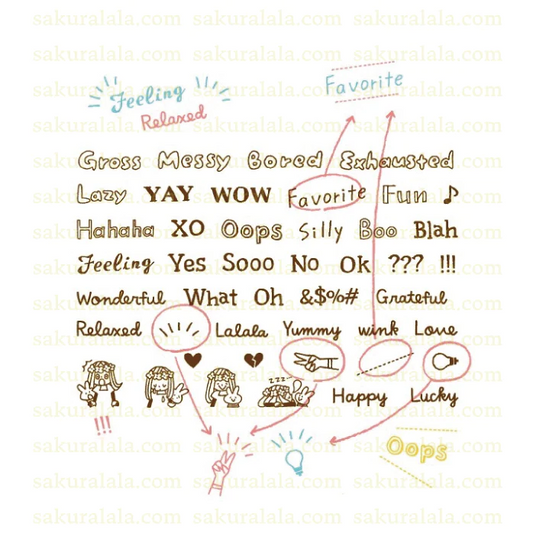 sakuralala.com sakuralala.com sakuralala.com
Feeling
Relaxed
Favorite
Gross Messy Bored Exhausted
Lazy YAY WOW Favorite Fun ♪
Hahaha XO Oops Silly Boo Blah
Feeling Yes Sooo No Ok ??? !!!
Wonderful What Oh &$%# Grateful
Relaxed Lalala Yummy wink Love
zzz
Happy Lucky
!!!
Oops
sakuralala.com sakuralala.com sakuralala.com